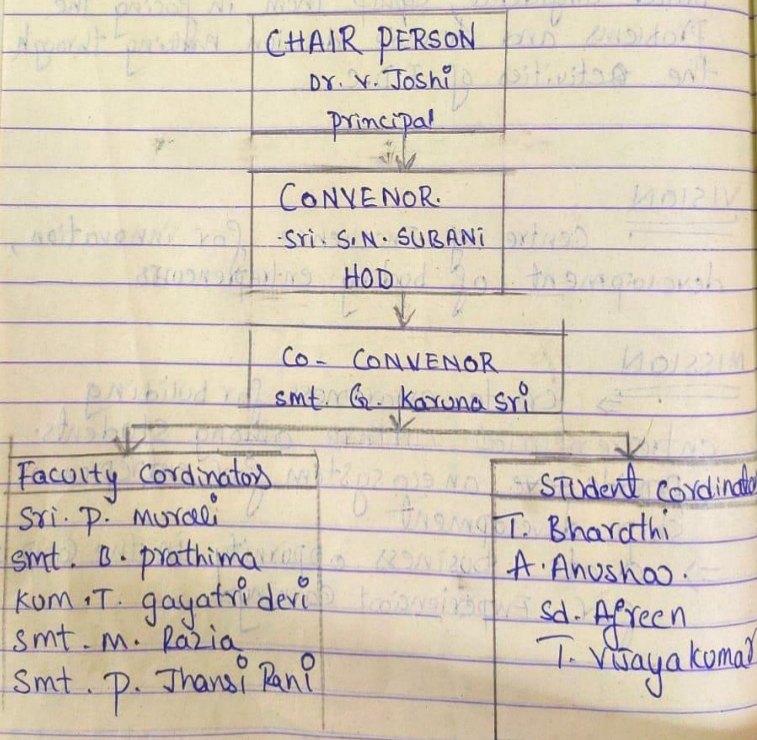 CHAIR PERSON
Dr. V. Joshi
principal
CONVENOR.
Sri. S.N. SUBANi
HOD
CO - CONVENOR
smt. G. Karuna Sri
Faculty Cordinators
Sri. P. murali
smt. B. prathima
Kum. T. gayatri devi
Smt. M. Razia
Smt. P. Jhansi Rani
STudent cordinato
T. Bharathi
A. Anushaa.
Sd. Afreen
T. Vijayakumar